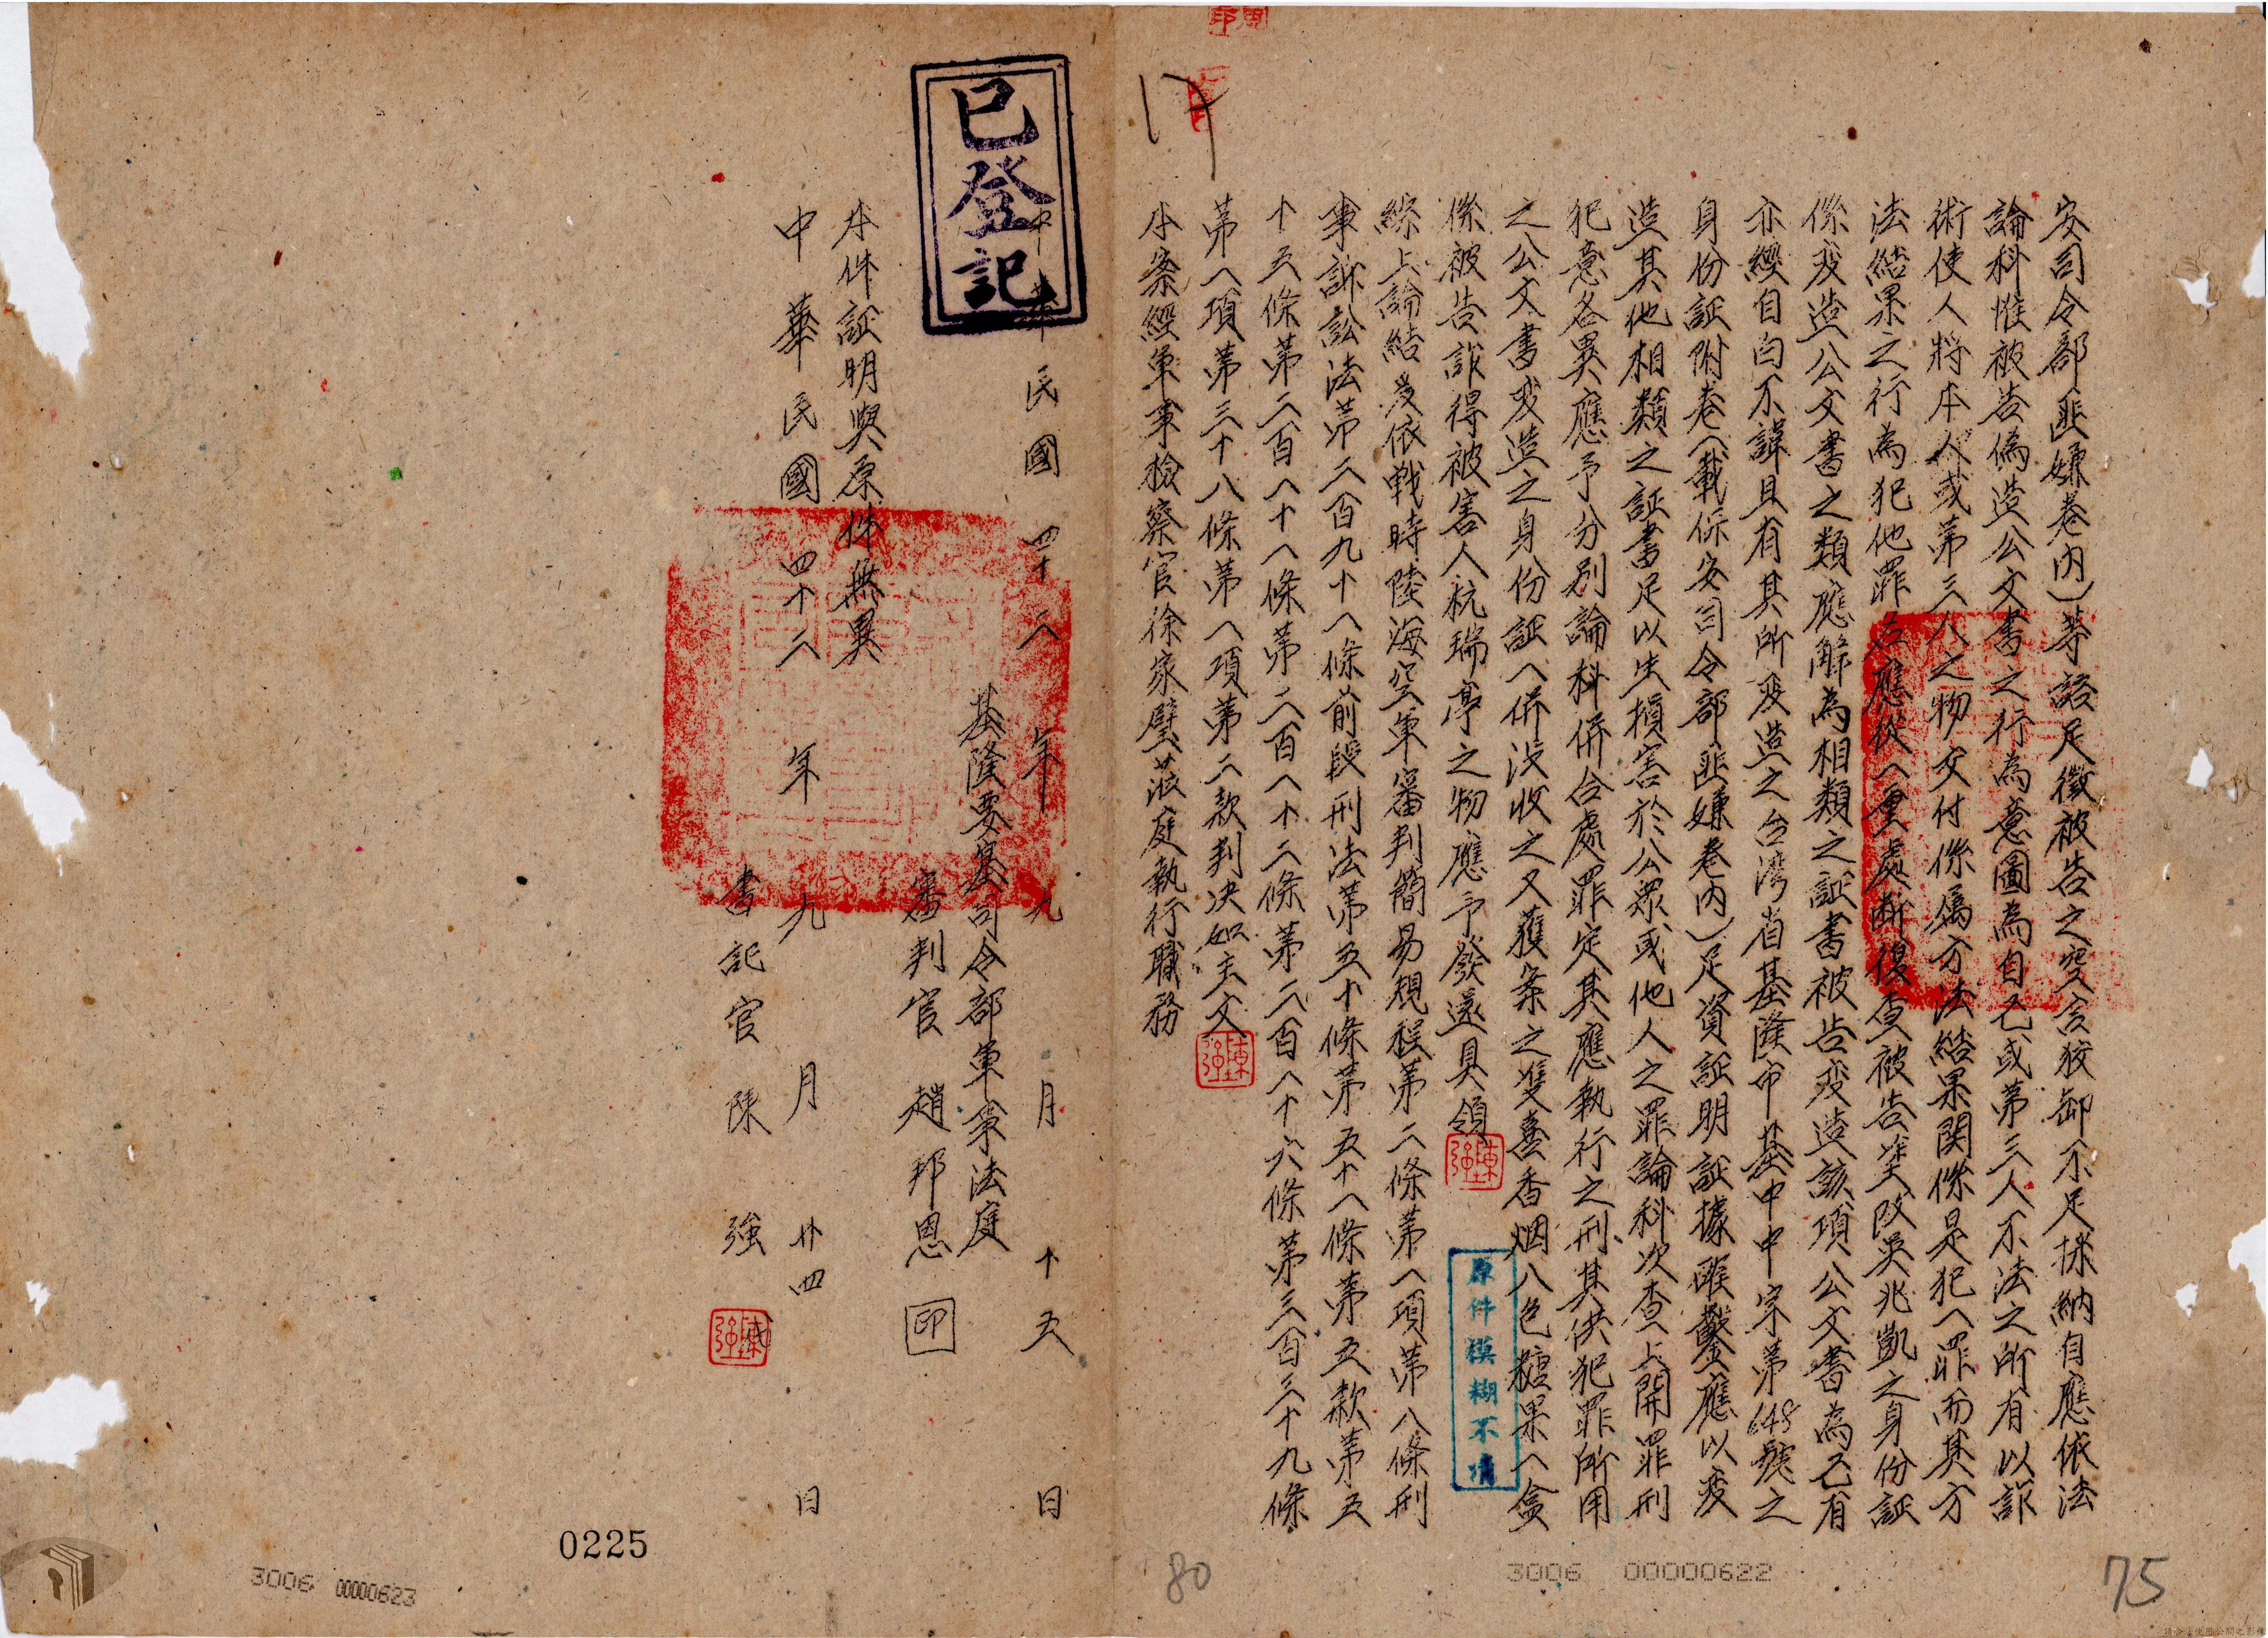 安司令部匪嫌卷内)等語足徵被告之空言狡卸不足採納自應依法
論科惟被告偽造公文書之行為意圖為自己或第三人不法之所有以詐
術使人將本人或第三人之物交付係屬方法結果関係是犯一罪而其方
法結果之行為犯他罪名應從一重處断復查被告塗改吳兆凱之身份証
係変造公文書之類應解為相類之証書被告变造該項公文書為己有
亦經自白不諱且有其所变造之台湾省基隆市基中中字第648號之
身份証附卷(載保安司令部匪嫌卷内)足資証明証據確鑿應以变
造其他相類之証書足以生損害於公眾或他人之罪論科次查上開罪刑
犯意各異應予分别論科併合處罪定其應執行之刑其供犯罪所用
之公文書变造之身份証一併沒收之又獲案之雙喜香烟八色糖果一盒
係被告詐得被害人杭瑞亭之物應予發還具領
綜上論結爰依戰時陸海空軍審判簡易規程第二條第一項第八條刑
事訴訟法第二百九十一條前段刑法第五十條第五十一條第五款第五
十五條第二百一十一條第二百一十二條第二百一十六條第三百三十九條
第一項第三十八條第一項第二款判决如主文
本案經軍事檢察官徐家璧蒞庭執行職務
中華民國四十二年九月十五日
基隆要塞司令部軍事法庭
審判官趙邦恩印
本件証明與原件無異
中華民國四十二年九月廿四日
書記官陳強
已登記
原件模糊不清
陳強
陳強
陳強
0225
3006 00000623
80
3006 00000622
75